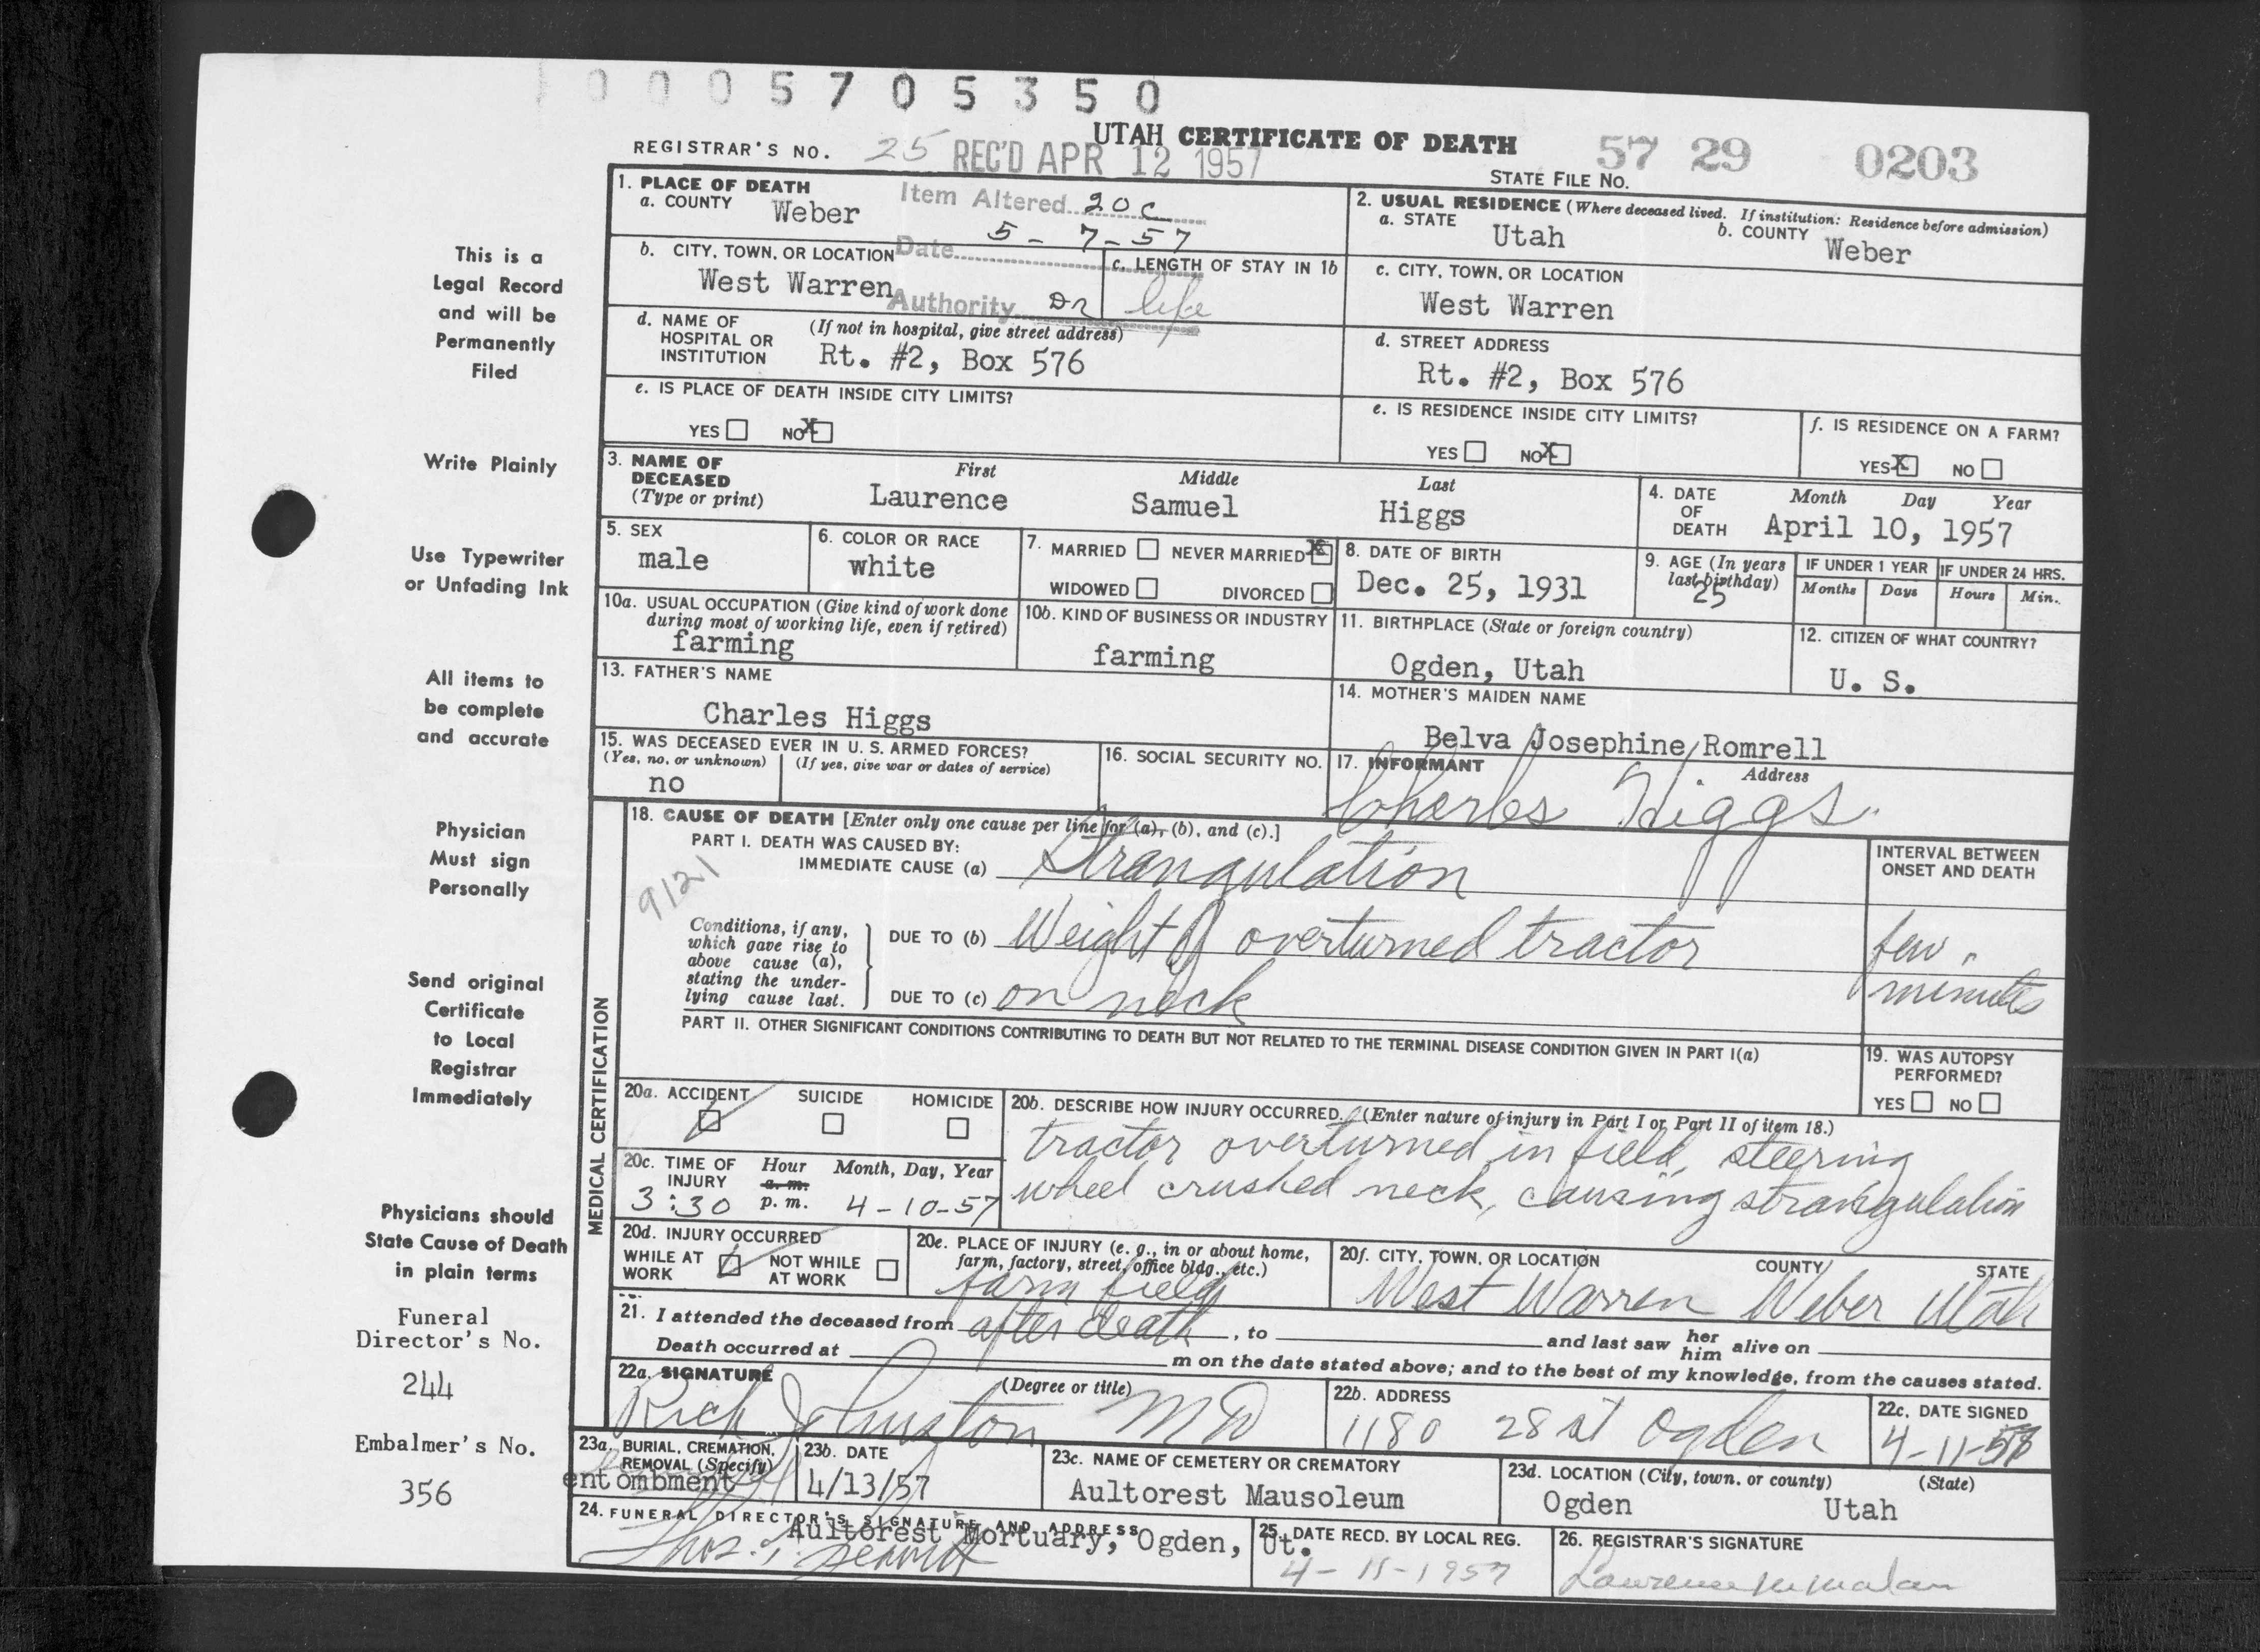 0005705350
UTAH CERTIFICATE OF DEATH
REGISTRAR'S NO. 25 REC'D APR 12 1957
STATE FILE NO. 57 29 0203
1. PLACE OF DEATH
a. COUNTY Weber
Item Altered 20c
Date 5-7-57
Authority Dr
b. CITY, TOWN, OR LOCATION
West Warren
c. LENGTH OF STAY IN 1b
life
d. NAME OF HOSPITAL OR INSTITUTION (If not in hospital, give street address)
Rt. #2, Box 576
e. IS PLACE OF DEATH INSIDE CITY LIMITS?
YES NO X
2. USUAL RESIDENCE (Where deceased lived. If institution: Residence before admission)
a. STATE Utah b. COUNTY Weber
c. CITY, TOWN, OR LOCATION
West Warren
d. STREET ADDRESS
Rt. #2, Box 576
e. IS RESIDENCE INSIDE CITY LIMITS?
YES NO X
f. IS RESIDENCE ON A FARM?
YES X NO
3. NAME OF DECEASED (Type or print)
First Middle Last
Laurence Samuel Higgs
4. DATE OF DEATH Month Day Year
April 10, 1957
5. SEX
male
6. COLOR OR RACE
white
7. MARRIED NEVER MARRIED X
WIDOWED DIVORCED
8. DATE OF BIRTH
Dec. 25, 1931
9. AGE (In years last birthday)
25
IF UNDER 1 YEAR IF UNDER 24 HRS.
Months Days Hours Min.
10a. USUAL OCCUPATION (Give kind of work done during most of working life, even if retired)
farming
10b. KIND OF BUSINESS OR INDUSTRY
farming
11. BIRTHPLACE (State or foreign country)
Ogden, Utah
12. CITIZEN OF WHAT COUNTRY?
U. S.
13. FATHER'S NAME
Charles Higgs
14. MOTHER'S MAIDEN NAME
Belva Josephine Romrell
15. WAS DECEASED EVER IN U. S. ARMED FORCES?
(Yes, no, or unknown) (If yes, give war or dates of service)
no
16. SOCIAL SECURITY NO.
17. INFORMANT Address
Charles Higgs.
MEDICAL CERTIFICATION
18. CAUSE OF DEATH [Enter only one cause per line for (a), (b), and (c).]
PART I. DEATH WAS CAUSED BY:
IMMEDIATE CAUSE (a) Strangulation
9121
Conditions, if any, which gave rise to above cause (a), stating the underlying cause last.
DUE TO (b) Weight of overturned tractor
DUE TO (c) on neck
INTERVAL BETWEEN ONSET AND DEATH
few minutes
PART II. OTHER SIGNIFICANT CONDITIONS CONTRIBUTING TO DEATH BUT NOT RELATED TO THE TERMINAL DISEASE CONDITION GIVEN IN PART I(a)
19. WAS AUTOPSY PERFORMED?
YES NO
20a. ACCIDENT SUICIDE HOMICIDE
20b. DESCRIBE HOW INJURY OCCURRED. (Enter nature of injury in Part I or Part II of item 18.)
tractor overturned in field, steering
wheel crushed neck, causing strangulation
20c. TIME OF INJURY Hour Month, Day, Year
a. m.
3:30 p. m. 4-10-57
20d. INJURY OCCURRED
WHILE AT WORK NOT WHILE AT WORK
20e. PLACE OF INJURY (e. g., in or about home, farm, factory, street, office bldg., etc.)
farm field
20f. CITY, TOWN, OR LOCATION COUNTY STATE
West Warren Weber Utah
21. I attended the deceased from after death, to and last saw her him alive on
Death occurred at m on the date stated above; and to the best of my knowledge, from the causes stated.
22a. SIGNATURE (Degree or title)
Rich Johnston MD
22b. ADDRESS
1180 28 st Ogden
22c. DATE SIGNED
4-11-57
23a. BURIAL, CREMATION, REMOVAL (Specify)
entombment
23b. DATE
4/13/57
23c. NAME OF CEMETERY OR CREMATORY
Aultorest Mausoleum
23d. LOCATION (City, town, or county) (State)
Ogden Utah
24. FUNERAL DIRECTOR'S SIGNATURE AND ADDRESS
Aultorest Mortuary, Ogden, Ut.
25. DATE RECD. BY LOCAL REG.
4-11-1957
26. REGISTRAR'S SIGNATURE
Laurence M Malan
This is a
Legal Record
and will be
Permanently
Filed
Write Plainly
Use Typewriter
or Unfading Ink
All items to
be complete
and accurate
Physician
Must sign
Personally
Send original
Certificate
to Local
Registrar
Immediately
Physicians should
State Cause of Death
in plain terms
Funeral
Director's No.
244
Embalmer's No.
356